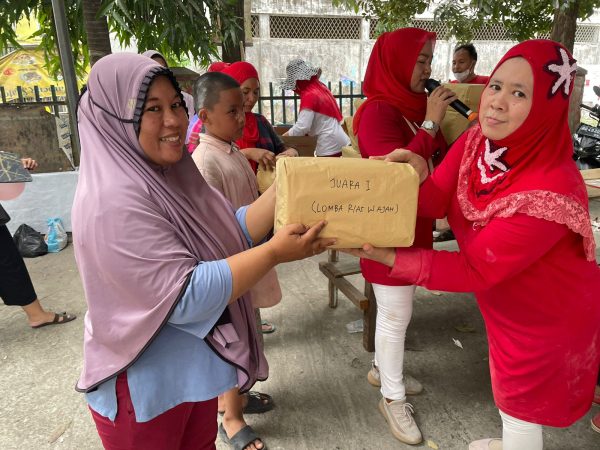 JUARA I
(LOMBA RIAS WAJAH)